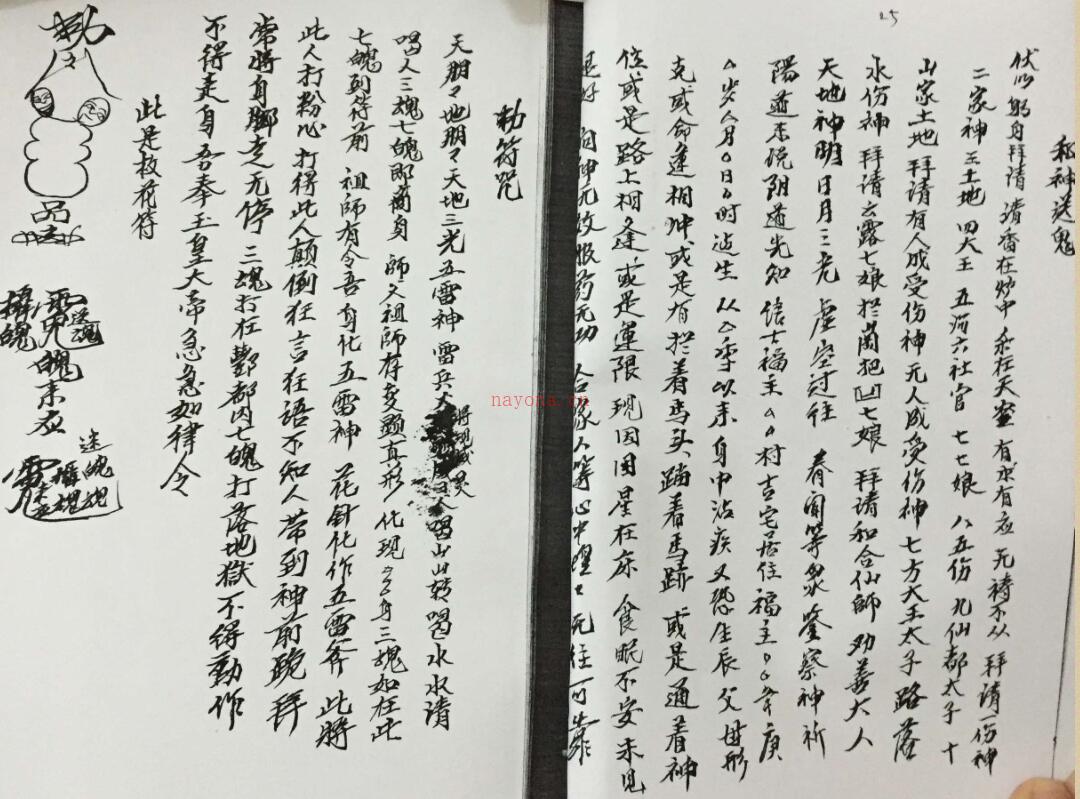 25
和神送鬼
伏以躬身拜请清香在炉中 和在天盘 有求有应 无祷不从 拜请一伤神
二家神王土地 四大王 五六社官 七七娘 八五伤 九仙都太子 十
山家土地 拜请有人成受伤神 无人成受伤神 七方大王太子路落
水伤神 拜请云露七娘 七娘 拜请和合仙師 劝善大人
天地神明日月三光 虚空过往 眷闻等众 鉴察神祈
陽道未说阴道先知 信士福主 村吉宅居住福主 年庚
岁 月 日 时 生 从 年以来 身中沾疾 又恐生辰 父母形
克或命逢相冲 或是有 着马头 踏着馬蹟 或是通着神
位或是路上相逢 或是運限 現因 星在床 食眠不安 未見
神无效服药无功 合家人等心中惶々 无 可靠
勅符咒
天朋々地朋々天地三光五雷神 雷兵 将現威灵 喝山山转喝水水清
喝人三魂七魄 身 師父祖師 真形 化現 身三魂如在此
七魄到符前 祖師有令吾身化五雷神 花針化作五雷斧 此將
此人打粉心 打得此人顛倒狂言狂語不知人 帶到神前跪拜
常將身脚走无停 三魂打在酆都内七魄打落地獄不得動作
不得走身吾奉玉皇大帝急急如律令
此是枚花符
勅
品
攝魄
魂
魄末应
迷魄魂
攝魂
nayona.cn